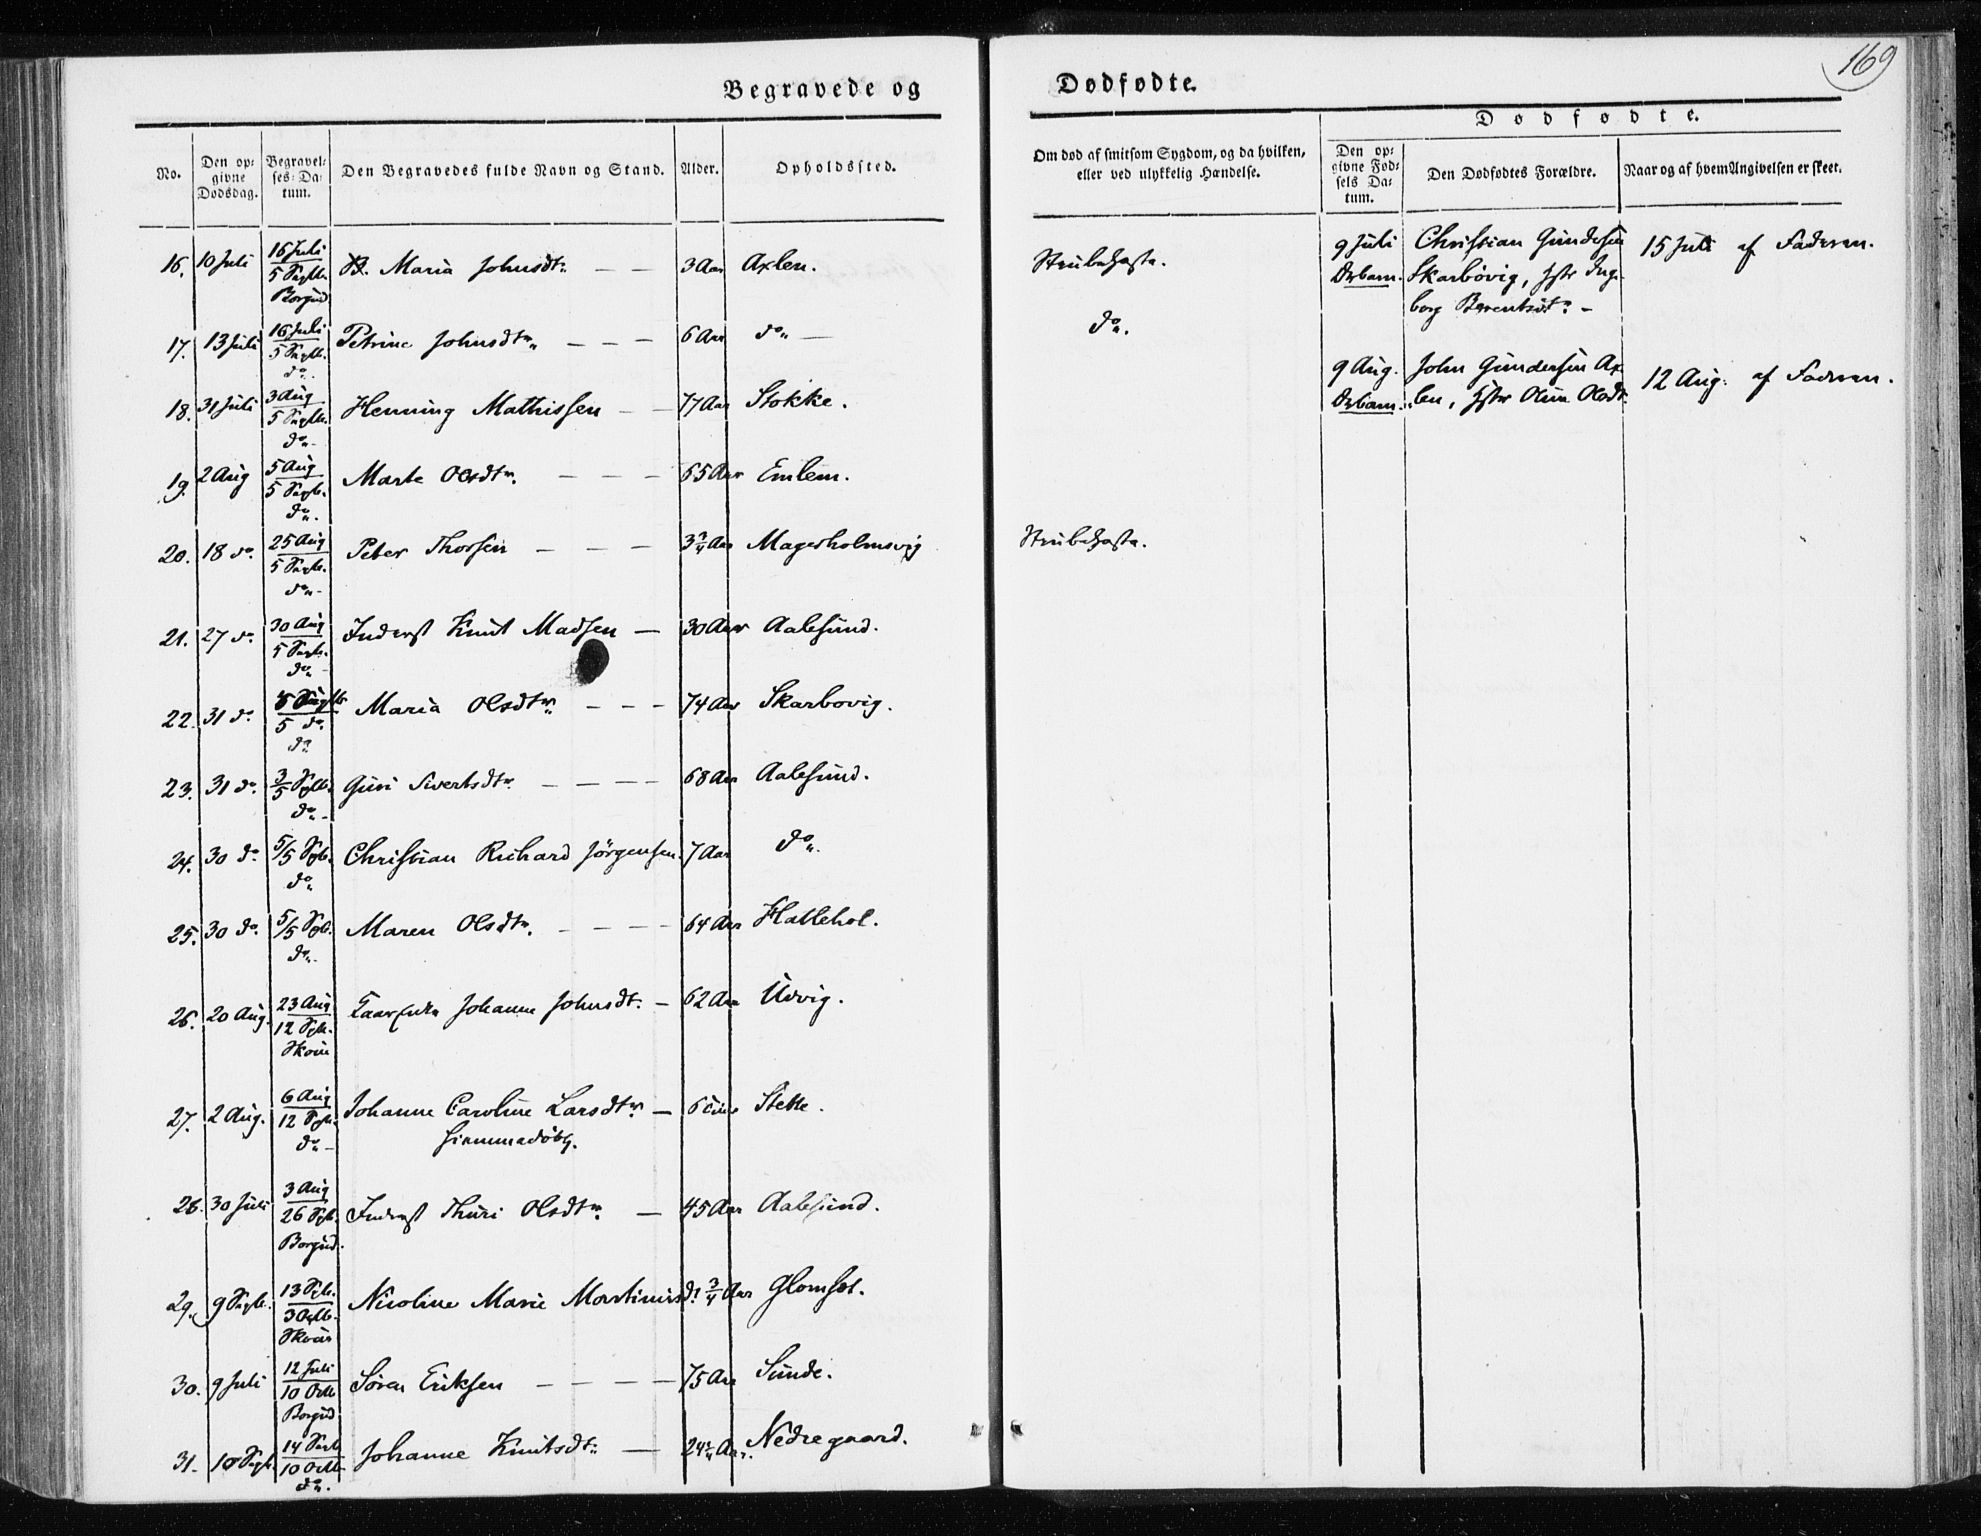 169
Begravede og Dødfødte.
No.
Den op-
givne
Dødsdag.
Begravel-
ses-Da-
tum.
Den Begravedes fulde Navn og Stand.
Alder.
Opholdssted.
Om død af smitsom Sygdom, og da hvilken,
eller ved ulykkelig Hændelse.
Dødfødte.
Den op-
givne Fød-
sels Da-
tum.
Den Dødfødtes Forældre.
Naar og af hvem Angivelsen er skeet.
16. 10 Juli 16 Juli Maria Johnsdtr. 3 Aar Axlen. Strubehoste.
5 Septb.
Borgund
17. 13 Juli 16 Juli Petrine Johnsdtr. 6 Aar do do.
5 Septb.
do.
18. 31 Juli 3 Aug Henning Mathissen 77 Aar Stokke.
5 Septb.
do
19. 2 Aug 5 Aug Marte Olsdtr. 65 Aar Emlem.
5 Septb.
do.
20. 18 do. 25 Aug Peter Thorsen 3 3/4 Aar Magerholmsvig Strubehoste.
5 Septb.
do
21. 27 do. 30 Aug Inderst Knut Madsen 30 Aar Aalesund.
5 Septb.
do
22. 31 do. 5 Septb Maria Olsdtr. 74 Aar Skarbovig.
5 do.
do
23. 31 do. 3/5 Septb. Guri Sivertsdtr. 68 Aar Aalesund.
do.
24. 30 do. 5/5 Spb. Christian Richard Jörgensen. 7 Aar do.
do
25. 30 do. 5/5 Spb. Maren Olsdtr. 64 Aar Hattehol.
do.
26. 20 Aug. 23 Aug Johanne Johnsdt. 62 Aar Udvig.
12 Spb.
Skoue
27. 2 Aug. 6 Aug Johanne Caroline Larsdtr. 6 Uger Stette.
12 Spb. hjemmedöbt.
do
28. 30 Juli 3 Aug Inderst Thuri Olsdtr. 45 Aar Aalesund.
26 Spb.
Borgund.
29. 9 Septb. 13 Spb. Nicoline Marie Martinusd. 3/4 Aar Glomset.
3 Octb.
Skoue
30. 9 Juli 12 Juli Sören Eriksen 75 Aar Sunde.
10 Octb
Borgund
31. 10 Septb. 14 Septb Johanne Knutsdtr. 24 Aar. Nedregaard.
10 Octb
do.
9 Juli Christian Gundersen 15 Juli af Faderen.
Drbarn. Skarbövig, Hstr Inge-
borg Berentsdt.
9 Aug. John Gundersen Ax- 12 Aug: af Faderen.
Drbarn. len, Hstr Oline Olsdt.